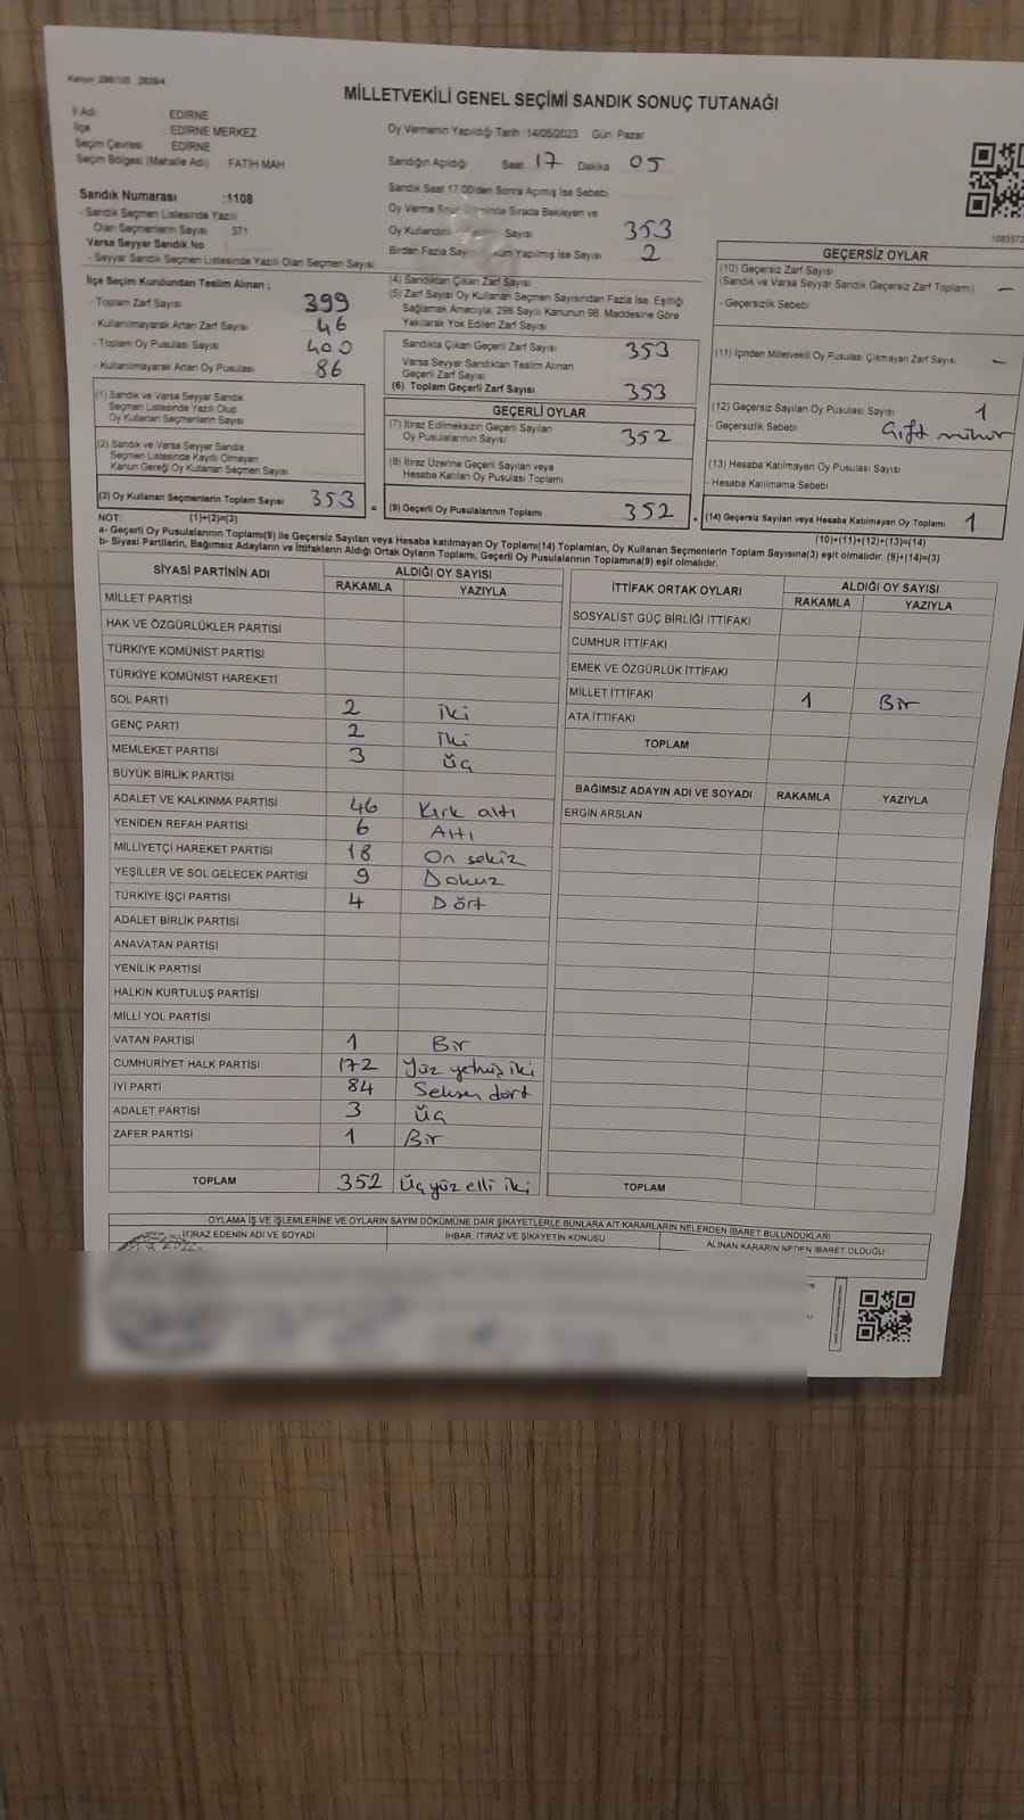 MİLLETVEKİLİ GENEL SEÇİMİ SANDIK SONUÇ TUTANAĞI
İl Adı: EDİRNE
İlçe EDİRNE MERKEZ
Seçim Çevresi EDİRNE
Seçim Bölgesi (Mahalle Adı) FATİH MAH
Sandık Numarası :1108
- Sandık Seçmen Listesinde Yazılı
Olan Seçmenlerin Sayısı 371
Varsa Seyyar Sandık No
- Seyyar Sandık Seçmen Listesinde Yazılı Olan Seçmen Sayısı
Oy Vermenin Yapıldığı Tarih :14/05/2023 Gün: Pazar
Sandığın Açıldığı Saat 17 Dakika 05
Sandık Saat 17.00'den Sonra Açılmış İse Sebebi
Oy Verme Sırasında Bekleyen ve
Oy Kullandırılan Sayısı 353
Birden Fazla Yapılmış İse Sayısı 2
İlçe Seçim Kurulundan Teslim Alınan ;
- Toplam Zarf Sayısı 399
- Kullanılmayarak Artan Zarf Sayısı 46
- Toplam Oy Pusulası Sayısı 400
- Kullanılmayarak Artan Oy Pusulası 86
(1) Sandık ve Varsa Seyyar Sandık
Seçmen Listesinde Yazılı Olup
Oy Kullanan Seçmenlerin Sayısı
(2) Sandık ve Varsa Seyyar Sandık
Seçmen Listesinde Kayıtlı Olmayan
Kanun Gereği Oy Kullanan Seçmen Sayısı
(3) Oy Kullanan Seçmenlerin Toplam Sayısı 353
(4) Sandıktan Çıkan Zarf Sayısı
(5) Zarf Sayısı Oy Kullanan Seçmen Sayısından Fazla İse, Eşitliği
Sağlamak Amacıyla, 298 Sayılı Kanunun 98. Maddesine Göre
Yakılarak Yok Edilen Zarf Sayısı
Sandıkta Çıkan Geçerli Zarf Sayısı 353
Varsa Seyyar Sandıktan Teslim Alınan
Geçerli Zarf Sayısı
(6) Toplam Geçerli Zarf Sayısı 353
GEÇERLİ OYLAR
(7) İtiraz Edilmeksizin Geçerli Sayılan
Oy Pusulalarının Sayısı 352
(8) İtiraz Üzerine Geçerli Sayılan veya
Hesaba Katılan Oy Pusulası Toplamı
(9) Geçerli Oy Pusulalarının Toplamı 352
GEÇERSİZ OYLAR
(10) Geçersiz Zarf Sayısı
(Sandık ve Varsa Seyyar Sandık Geçersiz Zarf Toplamı) —
- Geçersizlik Sebebi
(11) İçinden Milletvekili Oy Pusulası Çıkmayan Zarf Sayısı —
(12) Geçersiz Sayılan Oy Pusulası Sayısı 1
- Geçersizlik Sebebi Çift mühür
(13) Hesaba Katılmayan Oy Pusulası Sayısı
- Hesaba Katılmama Sebebi
(14) Geçersiz Sayılan veya Hesaba Katılmayan Oy Toplamı 1
NOT: (1)+(2)=(3) (10)+(11)+(12)+(13)=(14)
a- Geçerli Oy Pusulalarının Toplamı(9) İle Geçersiz Sayılan veya Hesaba katılmayan Oy Toplamı(14) Toplamları, Oy Kullanan Seçmenlerin Toplam Sayısına(3) eşit olmalıdır. (9)+(14)=(3)
b- Siyasi Partilerin, Bağımsız Adayların ve İttifakların Aldığı Ortak Oyların Toplamı, Geçerli Oy Pusulalarının Toplamına(9) eşit olmalıdır.
SİYASİ PARTİNİN ADI ALDIĞI OY SAYISI
RAKAMLA YAZIYLA
MİLLET PARTİSİ
HAK VE ÖZGÜRLÜKLER PARTİSİ
TÜRKİYE KOMÜNİST PARTİSİ
TÜRKİYE KOMÜNİST HAREKETİ
SOL PARTİ 2 iki
GENÇ PARTİ 2 iki
MEMLEKET PARTİSİ 3 üç
BÜYÜK BİRLİK PARTİSİ
ADALET VE KALKINMA PARTİSİ 46 Kırk altı
YENİDEN REFAH PARTİSİ 6 Altı
MİLLİYETÇİ HAREKET PARTİSİ 18 On sekiz
YEŞİLLER VE SOL GELECEK PARTİSİ 9 Dokuz
TÜRKİYE İŞÇİ PARTİSİ 4 Dört
ADALET BİRLİK PARTİSİ
ANAVATAN PARTİSİ
YENİLİK PARTİSİ
HALKIN KURTULUŞ PARTİSİ
MİLLİ YOL PARTİSİ
VATAN PARTİSİ 1 Bir
CUMHURİYET HALK PARTİSİ 172 Yüz yetmiş iki
İYİ PARTİ 84 Seksen dört
ADALET PARTİSİ 3 üç
ZAFER PARTİSİ 1 Bir
TOPLAM 352 Üç yüz elli iki
İTTİFAK ORTAK OYLARI ALDIĞI OY SAYISI
RAKAMLA YAZIYLA
SOSYALİST GÜÇ BİRLİĞİ İTTİFAKI
CUMHUR İTTİFAKI
EMEK VE ÖZGÜRLÜK İTTİFAKI
MİLLET İTTİFAKI 1 Bir
ATA İTTİFAKI
TOPLAM
BAĞIMSIZ ADAYIN ADI VE SOYADI RAKAMLA YAZIYLA
ERGİN ARSLAN
TOPLAM
OYLAMA İŞ VE İŞLEMLERİNE VE OYLARIN SAYIM DÖKÜMÜNE DAİR ŞİKAYETLERLE BUNLARA AİT KARARLARIN NELERDEN İBARET BULUNDUKLARI
İTİRAZ EDENİN ADI VE SOYADI İHBAR, İTİRAZ VE ŞİKAYETİN KONUSU ALINAN KARARIN NEDEN İBARET OLDUĞU